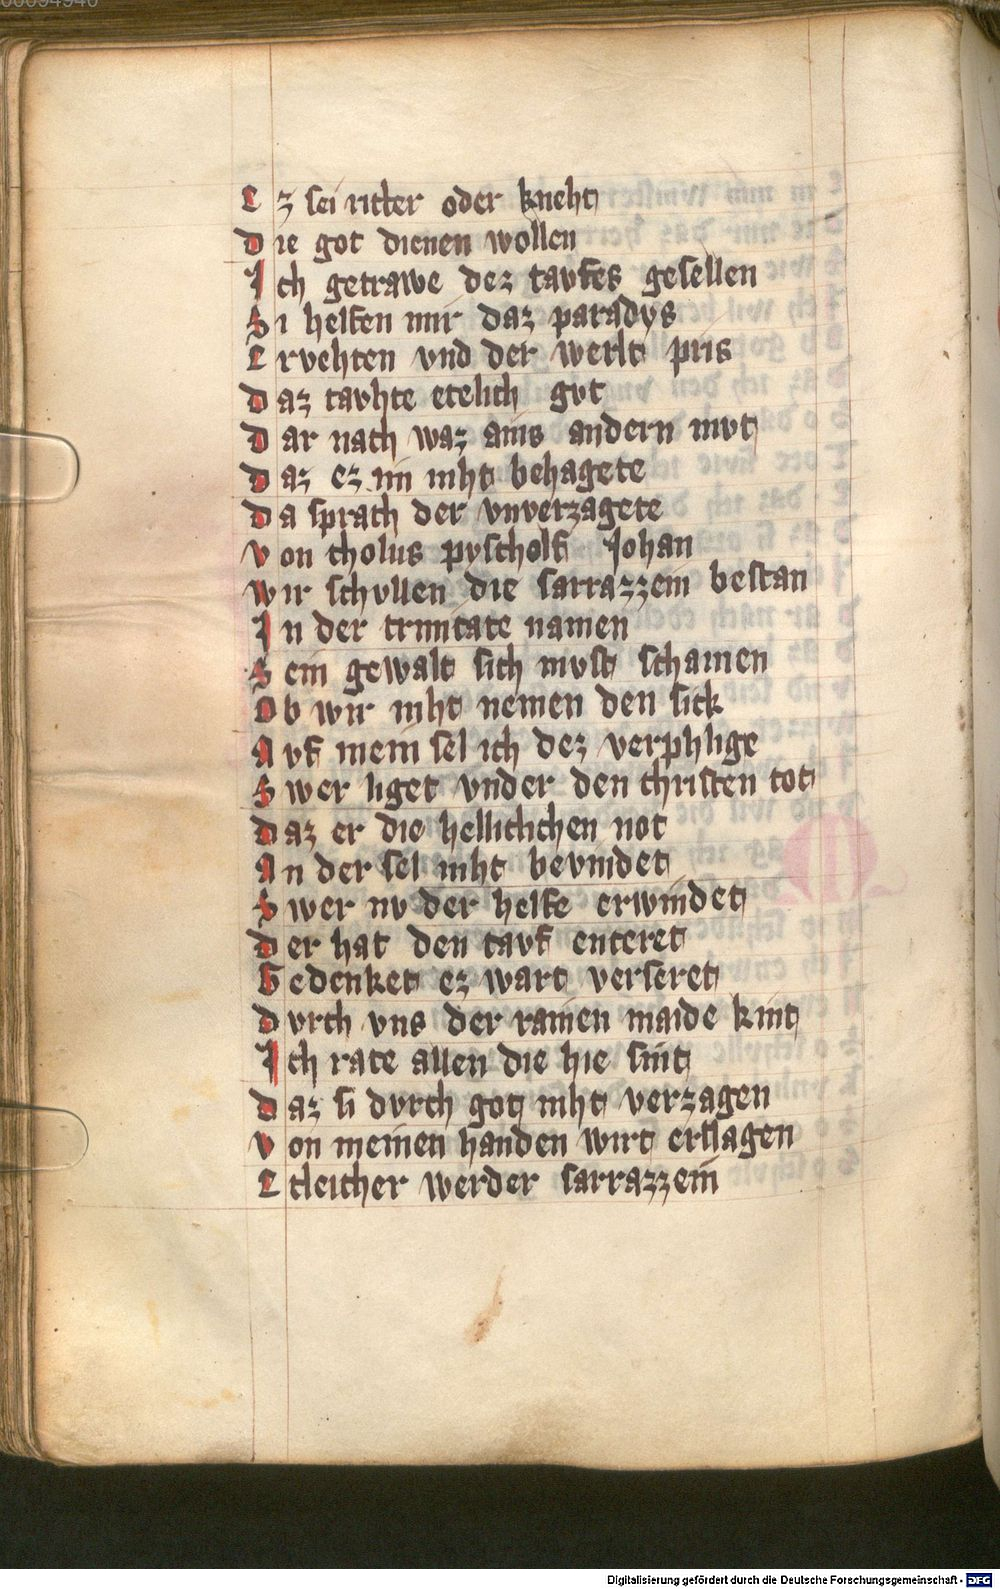 00094946
Ez sei ritter oder kneht
Die got dienen wollen
Ich getrawe dez tavfes gesellen
Si helfen mir daz paradys
Ervehten vnd der werlt pris
Daz tavhte etelich gvt
Dar nach waz ains andern mvt
Daz ez im niht behagete
Da sprach der vnverzagete
Von tholus pyscholf Johan
Wir schvllen die sarrazzein bestan
In der trinitate namen
Sein gewalt sich mvst schamen
Ob wir niht nemen den sick
Avf mein sel ich dez verphlige
Swer liget vnder den christen tot
Daz er die hellichlichen not
An der sel niht bevindet
Swer nv der helfe erwindet
Der hat den tavf enteret
Gedenket ez wart verseret
Dvrch vns der rainen maide kint
Ich rate allen die hie sint
Daz si dvrch got niht verzagen
Von meinen handen wirt erslagen
Etleicher werder sarrazzein
Digitalisierung gefördert durch die Deutsche Forschungsgemeinschaft - DFG